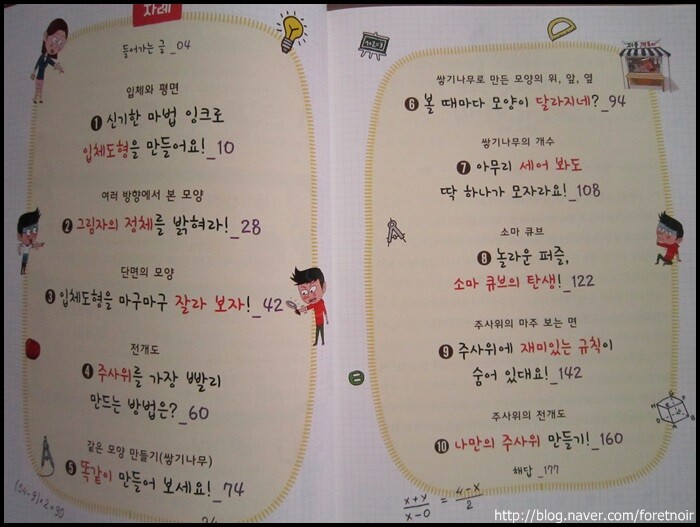 차례
들어가는 글_04
입체와 평면
1 신기한 마법 잉크로
입체도형을 만들어요!_10
여러 방향에서 본 모양
2 그림자의 정체를 밝혀라!_28
단면의 모양
3 입체도형을 마구마구 잘라 보자!_42
전개도
4 주사위를 가장 빨리
만드는 방법은?_60
같은 모양 만들기(쌓기나무)
5 똑같이 만들어 보세요!_74
쌓기나무로 만든 모양의 위, 앞, 옆
6 볼 때마다 모양이 달라지네?_94
쌓기나무의 개수
7 아무리 세어 봐도
딱 하나가 모자라요!_108
소마 큐브
8 놀라운 퍼즐,
소마 큐브의 탄생!_122
주사위의 마주 보는 면
9 주사위에 재미있는 규칙이
숨어 있대요!_142
주사위의 전개도
10 나만의 주사위 만들기!_160
해답_177
x+y/x-0 = 4-x/2
http://blog.naver.com/foretnoir